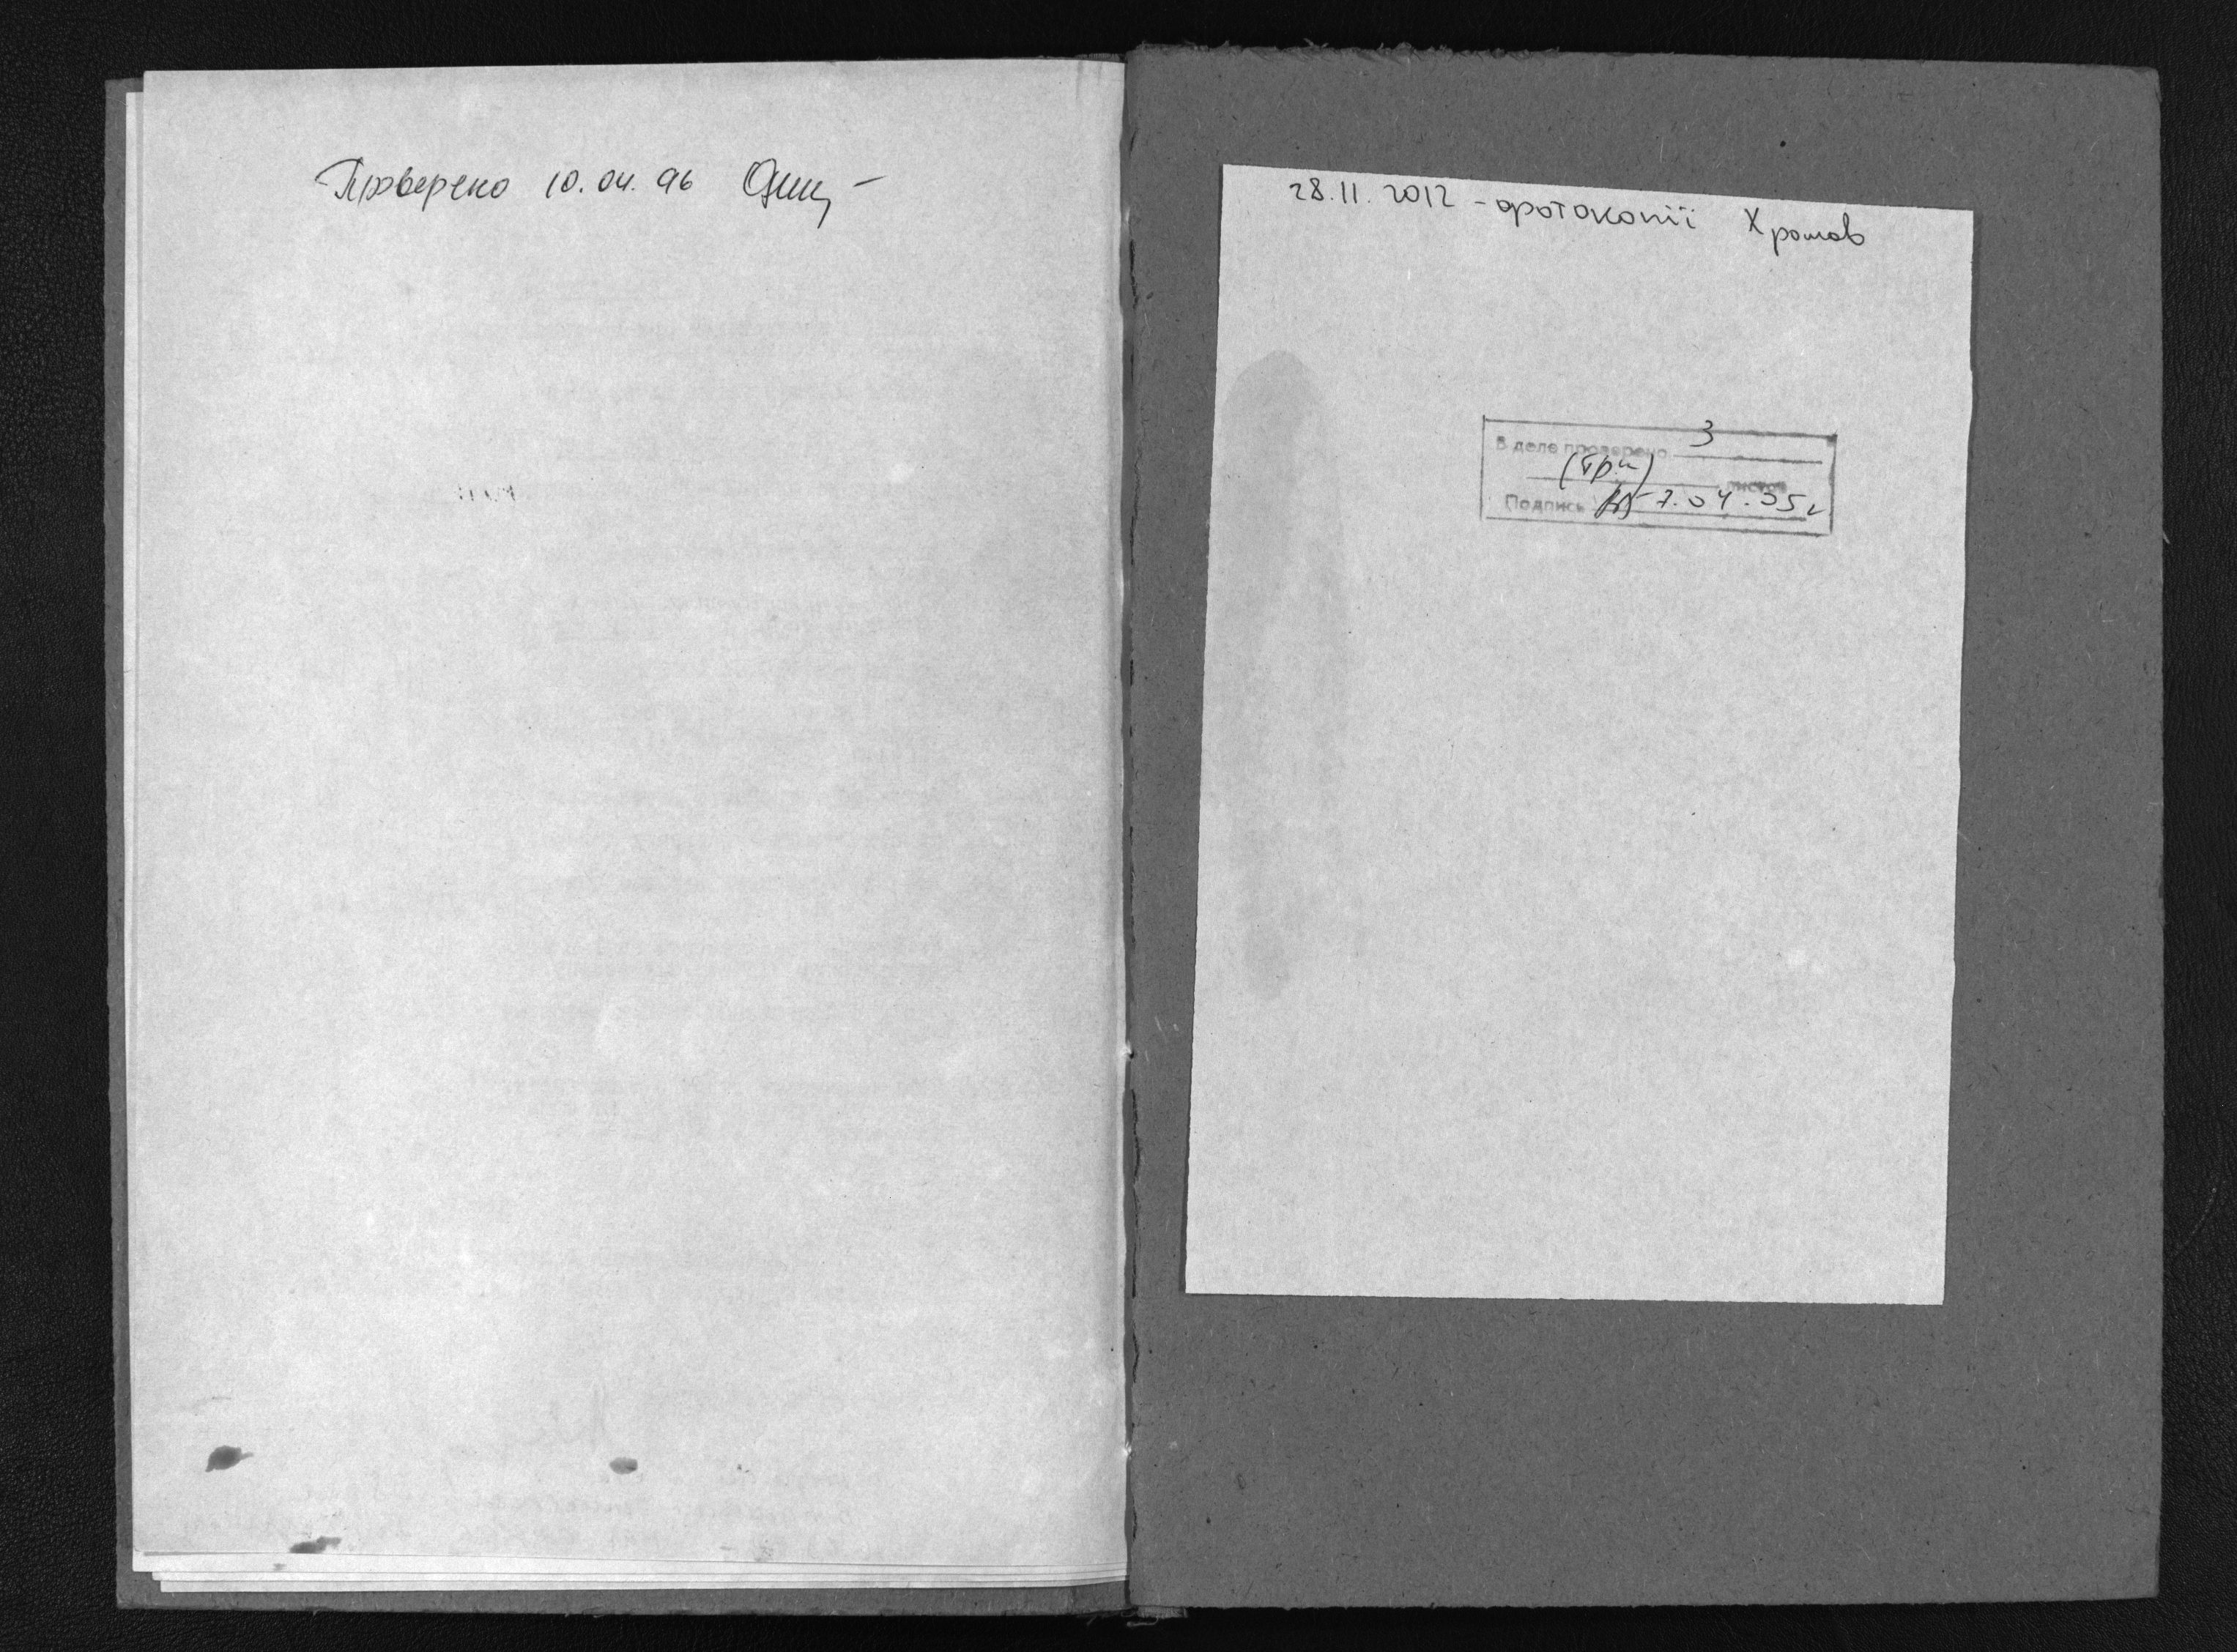 Проверено 10.04.96
28.11.2012 - фотокопії Хромов
В деле проверено 3
(три) листов
Подпись 7.04.05 г